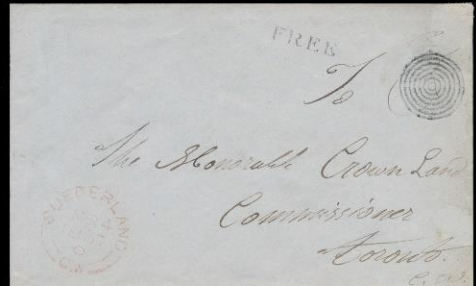 FREE
To
The Honorable Crown Land
Commissioner
Toronto.
C.W.
SUNDERLAND
C.W